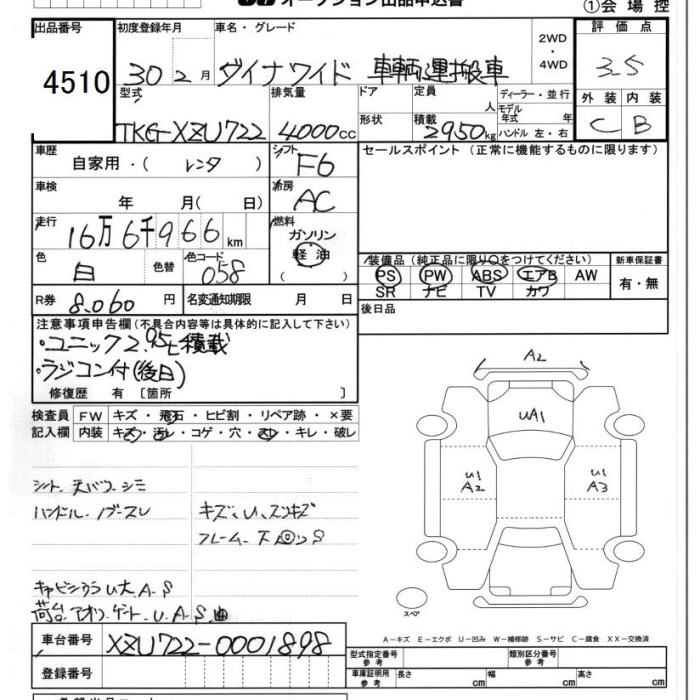 オークション出品申込書 ①会場控
出品番号 初度登録年月 車名・グレード 2WD・4WD 評価点
4510 30 2月 ダイナワイド 車輌運搬車 3.5
型式 排気量 ドア 定員 人 ディーラー・並行 外装 内装
TKG-XZU722 4000cc 形状 積載 2950kg モデル年式 年 ハンドル 左・右 C B
車歴 自家用・( レンタ ) シフト F6 セールスポイント (正常に機能するものに限ります)
車検 年 月( 日) 冷房 AC
走行 16万6千966km 燃料 ガソリン 軽油 ( )
色 白 色替 色コード 058 装備品(純正品に限り○をつけてください) 新車保証書
PS PW ABS エアB AW 有・無
SR ナビ TV カワ
R券 8.060円 名変通知期限 月 日 後日品
注意事項申告欄(不具合内容等は具体的に記入して下さい)
・ユニック2.95t積載
・ラジコン付(後日)
修復歴 有 〔箇所 〕
検査員 FW キズ・飛石・ヒビ割・リペア跡・×要
記入欄 内装 キズ・汚レ・コゲ・穴・スレ・キレ・破レ
A2
UA1
U1 A2
U1 A3
シート、天バリ、シミ
ハンドル、ノブ、スレ キズ、U、スリキズ
フレーム、下回りS
キャビンウラU大A.S
荷台アオリ、ゲート、U.A.S.曲
スペア
A-キズ E-エクボ U-凹み W-補修跡 S-サビ C-腐食 XX-交換済
車台番号 XZU722-0001898
型式指定番号 参考 類別区分番号 参考
登録番号 車庫証明用 参考 長さ cm 幅 cm 高さ cm